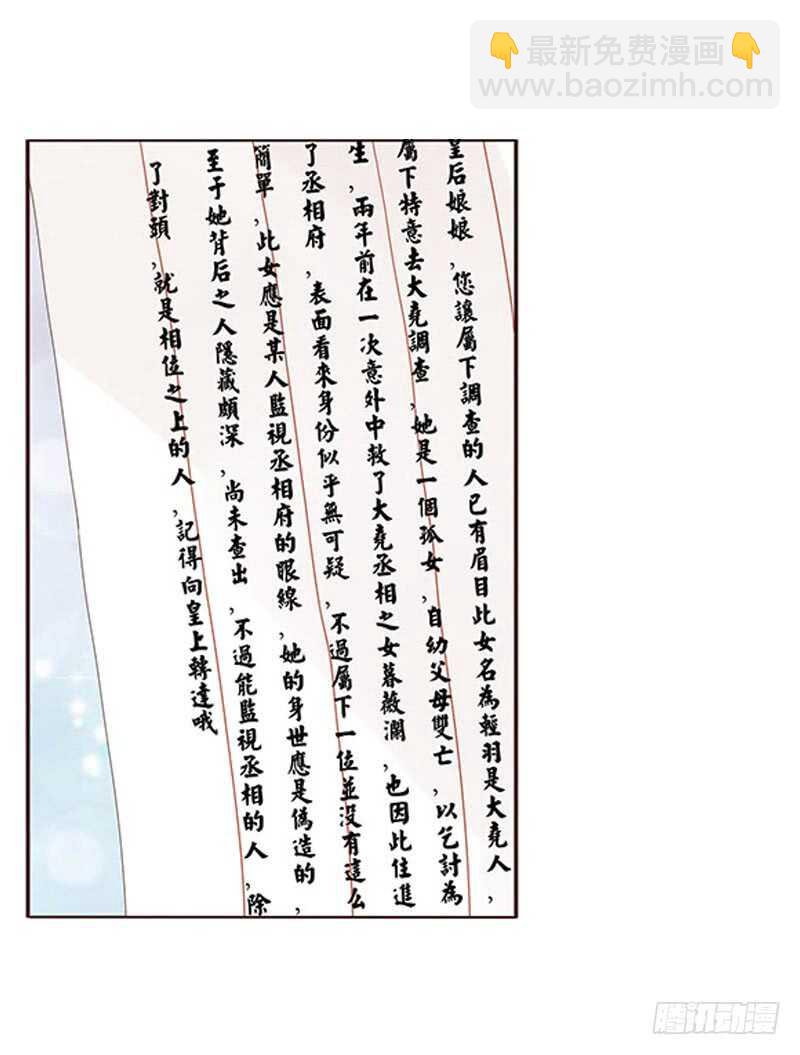 最新免费漫画
www.baozimh.com
皇后娘娘，您讓屬下調查的人已有眉目此女名為輕羽是大堯人，
屬下特意去大堯調查，她是一個孤女，自幼父母雙亡，以乞討為
生，兩年前在一次意外中救了大堯丞相之女暮薇瀾，也因此住進
了丞相府，表面看來身份似乎無可疑，不過屬下一位並沒有這么
簡單，此女應是某人監視丞相府的眼線，她的身世應是偽造的，
至于她背后之人隱藏頗深，尚未查出，不過能監視丞相的人，除
了對頭，就是相位之上的人，記得向皇上轉達哦
腾讯动漫